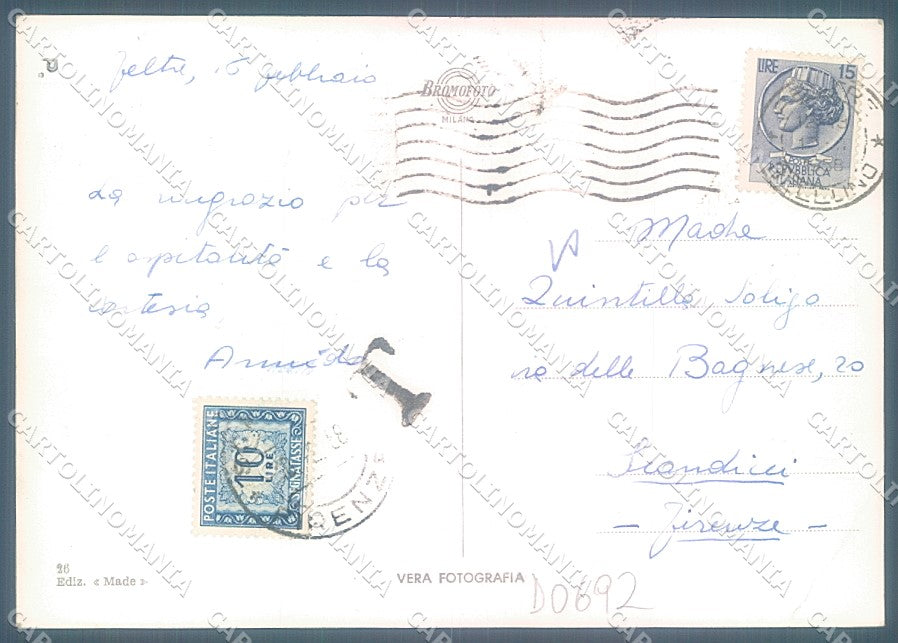 Feltre, 16 febbraio
La ringrazio per
l'ospitalità e la
cortesia
Armida
POSTE ITALIANE
10
LIRE
SEGNATASSE
FIRENZE
T
26
Ediz. « Made »
BROMOFOTO
MILANO
VERA FOTOGRAFIA
LIRE 15
REPVBBLICA
ITALIANA
Madre
Quintilla Soligo
via delle Bagnese, 20
Scandicci
- Firenze -
D0892
CARTOLINOMANIA